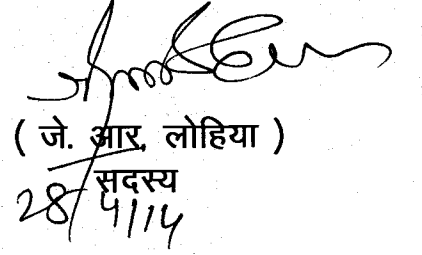 ( जे. आर. लोहिया )
सदस्य
28/4/14